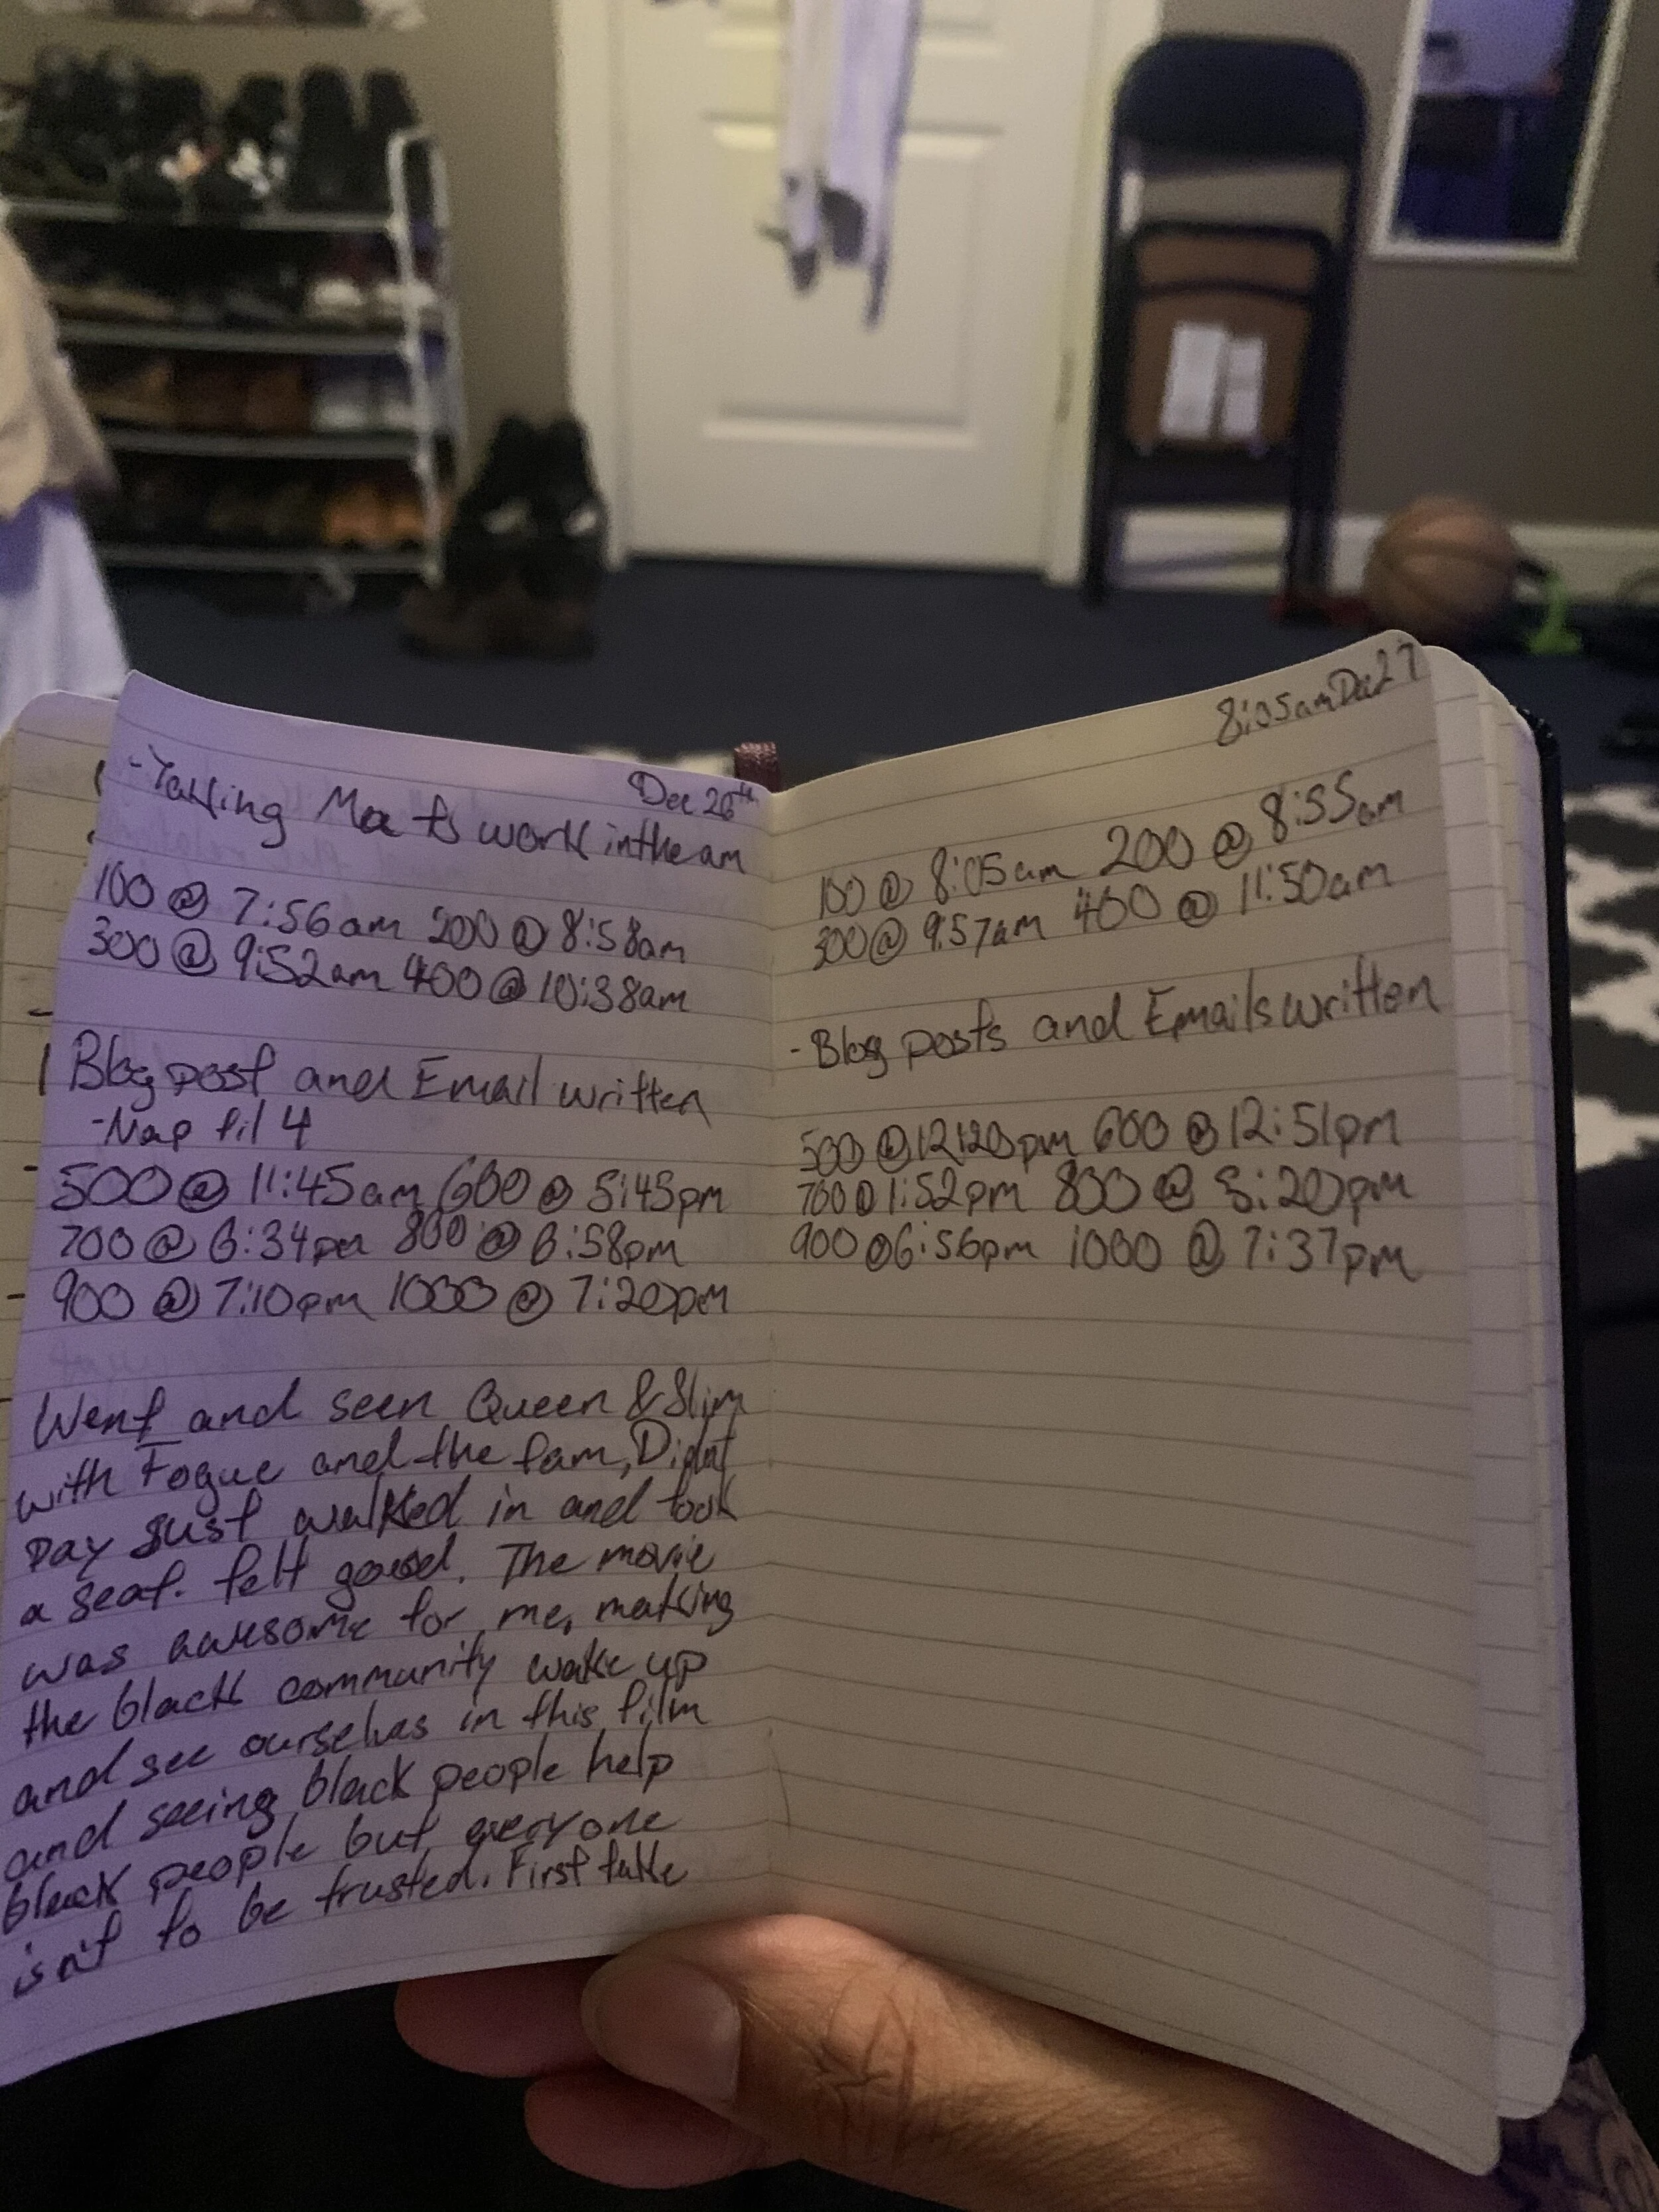 Dec 26th
-Taking Ma to work in the am
100 @ 7:56am 200 @ 8:58am
300 @ 9:52am 400 @ 10:38am
1 Blog post and Email written
-Nap til 4
500 @ 11:45am 600 @ 5:45pm
700 @ 6:34pm 800 @ 6:58pm
900 @ 7:10pm 1000 @ 7:20pm
Went and seen Queen & Slim
with Fogue and the fam, Didnt
pay just walked in and took
a seat. felt good. The movie
was awesome for me, making
the black community wake up
and see ourselves in this film
and seeing black people help
black people but everyone
isn't to be trusted. First take
8:05am Dec 27
100 @ 8:05am 200 @ 8:55am
300 @ 9:57am 400 @ 11:50am
-Blog posts and Emails written
500 @ 12:20pm 600 @ 12:51pm
700 @ 1:52pm 800 @ 5:20pm
900 @ 6:56pm 1000 @ 7:37pm